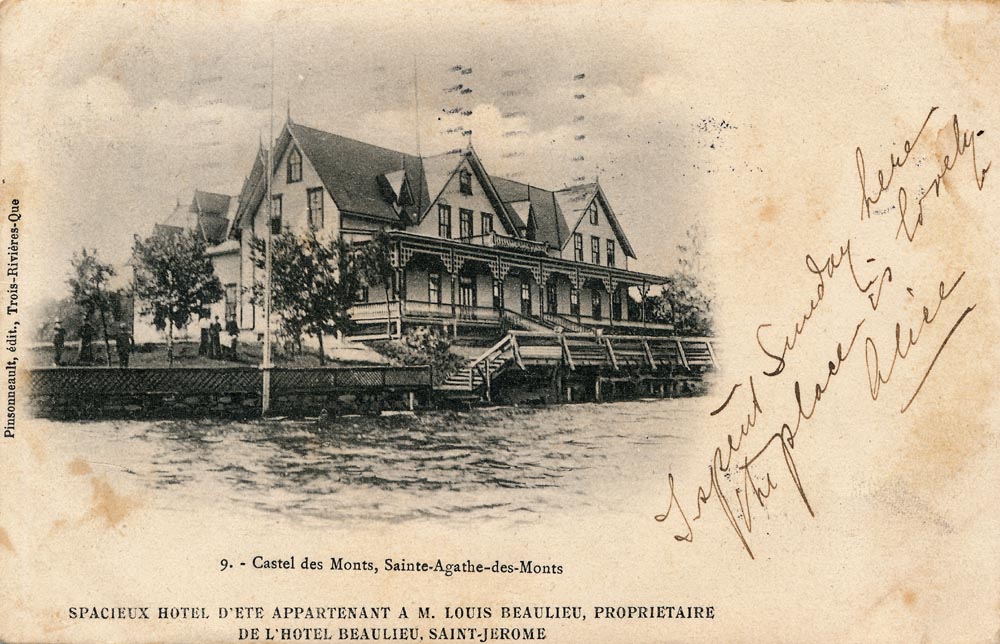 Pinsonneault, édit., Trois-Rivières-Que
I spent Sunday here
the place is lovely.
Alice
9. - Castel des Monts, Sainte-Agathe-des-Monts
SPACIEUX HOTEL D'ETE APPARTENANT A M. LOUIS BEAULIEU, PROPRIETAIRE
DE L'HOTEL BEAULIEU, SAINT-JEROME